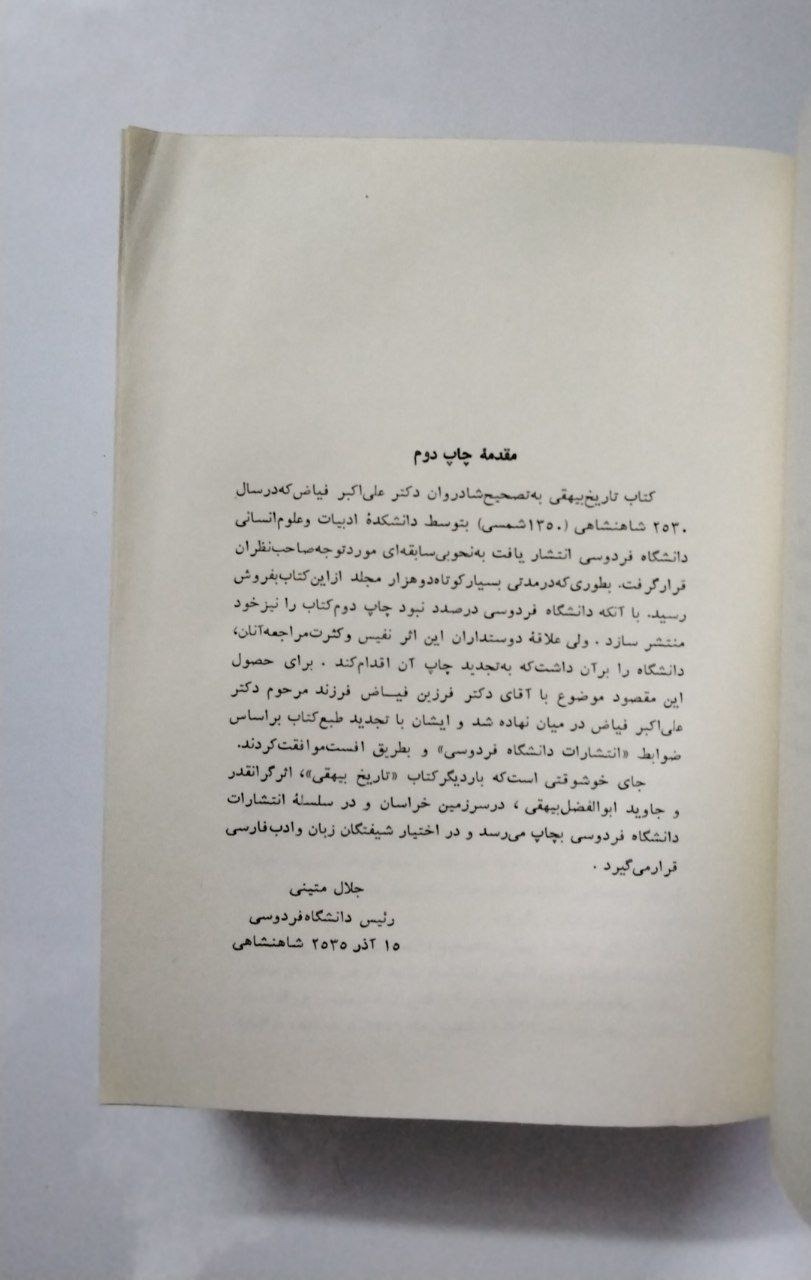 مقدمهٔ چاپ دوم
کتاب تاریخ بیهقی به تصحیح شادروان دکتر علی‌اکبر فیاض که در سال
۲۵۳۰ شاهنشاهی (۱۳۵۰ شمسی) بتوسط دانشکدهٔ ادبیات و علوم انسانی
دانشگاه فردوسی انتشار یافت به نحو بی‌سابقه‌ای مورد توجه صاحب‌نظران
قرار گرفت. بطوری که در مدتی بسیار کوتاه دو هزار مجلد از این کتاب بفروش
رسید. با آنکه دانشگاه فردوسی درصدد نبود چاپ دوم کتاب را نیز خود
منتشر سازد . ولی علاقهٔ دوستداران این اثر نفیس و کثرت مراجعه آنان،
دانشگاه را بر آن داشت که به تجدید چاپ آن اقدام کند . برای حصول
این مقصود موضوع با آقای دکتر فرزین فیاض فرزند مرحوم دکتر
علی‌اکبر فیاض در میان نهاده شد و ایشان با تجدید طبع کتاب براساس
ضوابط «انتشارات دانشگاه فردوسی» و بطریق افست موافقت کردند.
جای خوشوقتی است که بار دیگر کتاب «تاریخ بیهقی»، اثر گرانقدر
و جاوید ابوالفضل بیهقی ، در سرزمین خراسان و در سلسلهٔ انتشارات
دانشگاه فردوسی بچاپ می‌رسد و در اختیار شیفتگان زبان و ادب فارسی
قرار می‌گیرد .
جلال متینی
رئیس دانشگاه فردوسی
۱۵ آذر ۲۵۳۵ شاهنشاهی